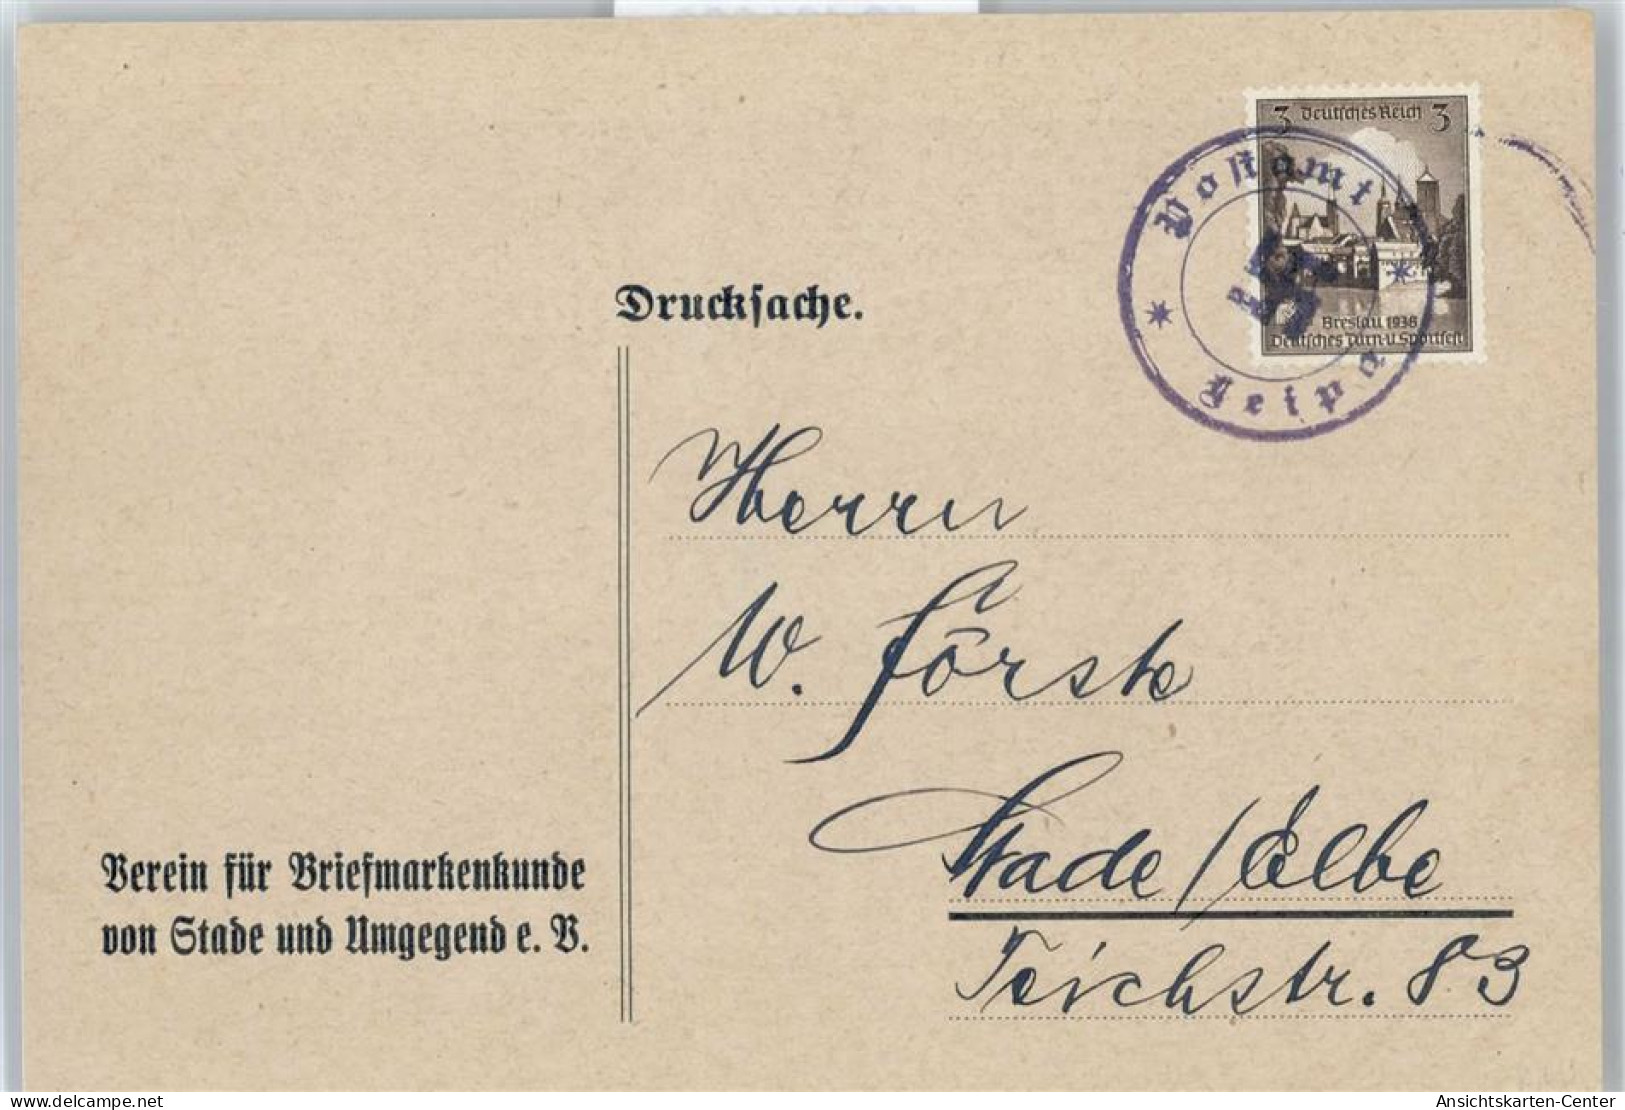 3 Deutsches Reich 3
Postamt
Breslau 1938
Deutsches Turn-u. Sportfest
Leipa
Drucksache.
Herrn
W. Förste
Stade / Elbe
Teichstr. 83
Verein für Briefmarkenkunde
von Stade und Umgegend e. V.
Ansichtskarten-Center
delcampe.net